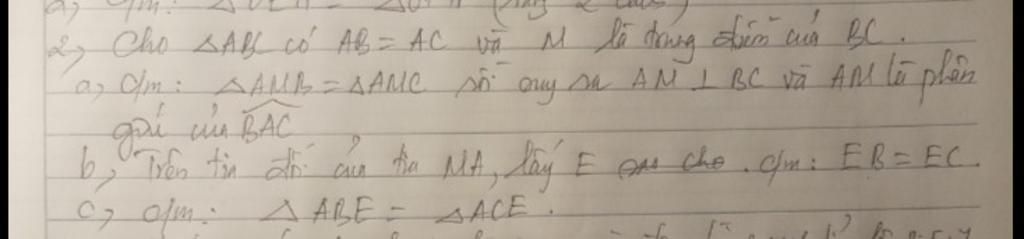 a, c/m:
2, Cho △ABC có AB = AC và M là trung điểm của BC.
a, c/m: △AMB = △AMC rồi suy ra AM ⊥ BC và AM là phân
giác của BAC
b, Trên tia đối của tia MA, lấy E sao cho. c/m: EB = EC.
c, c/m: △ABE = △ACE.